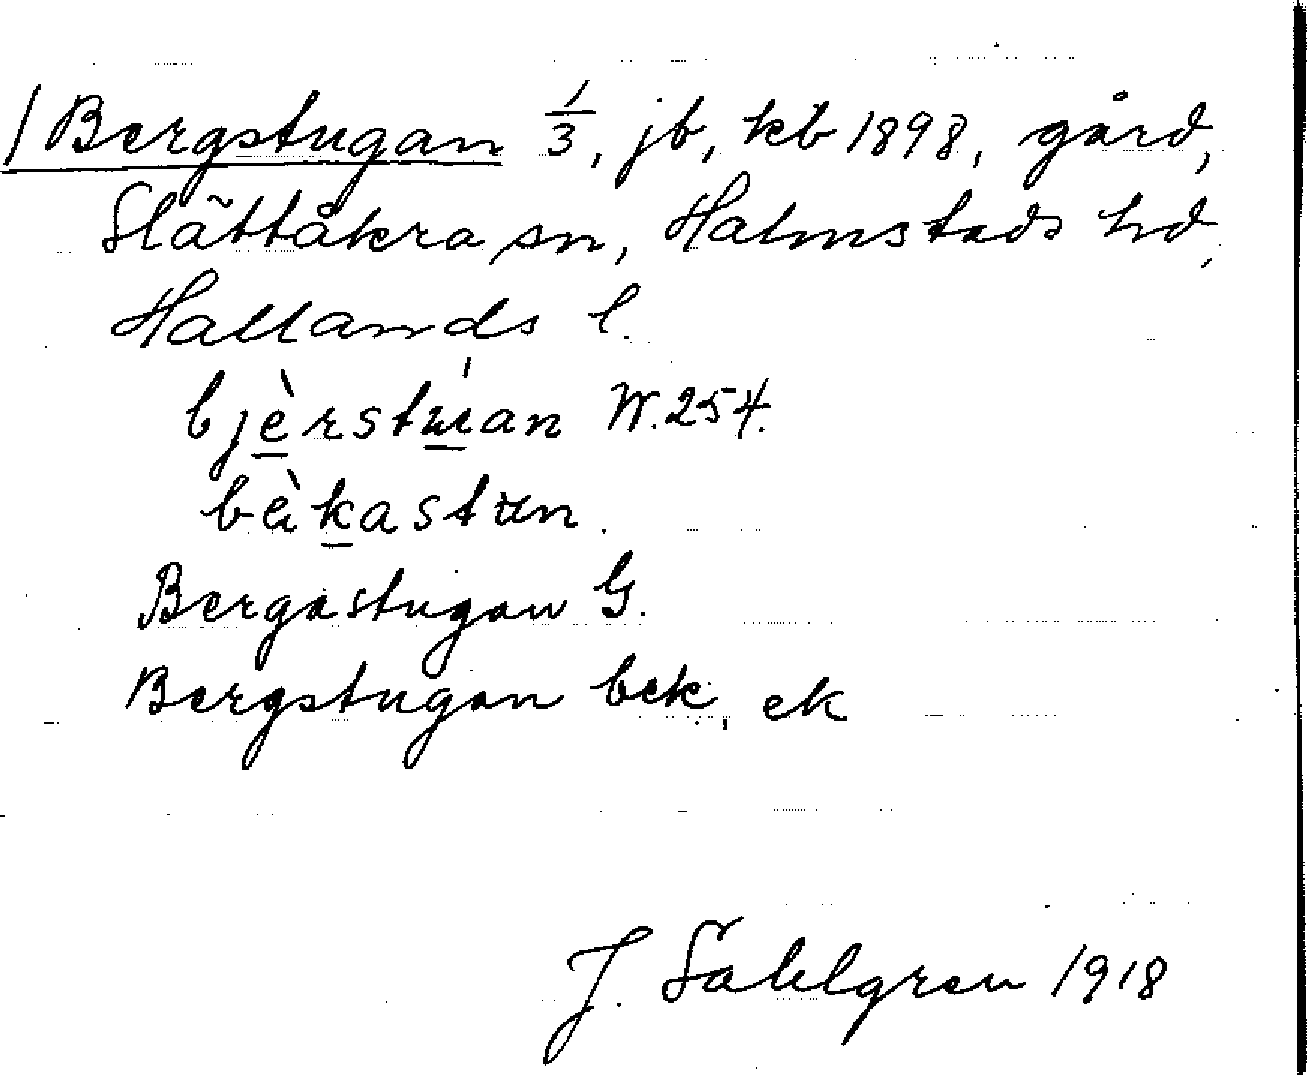 / Bergstugan 1/3, jb, kb 1898, gård,
Slättåkra sn, Halmstads hd,
Hallands l.
bjèrstu̇an W.254.
bèkastun.
Bergastugan G.
Bergstugan bek, ek
J. Sahlgren 1918